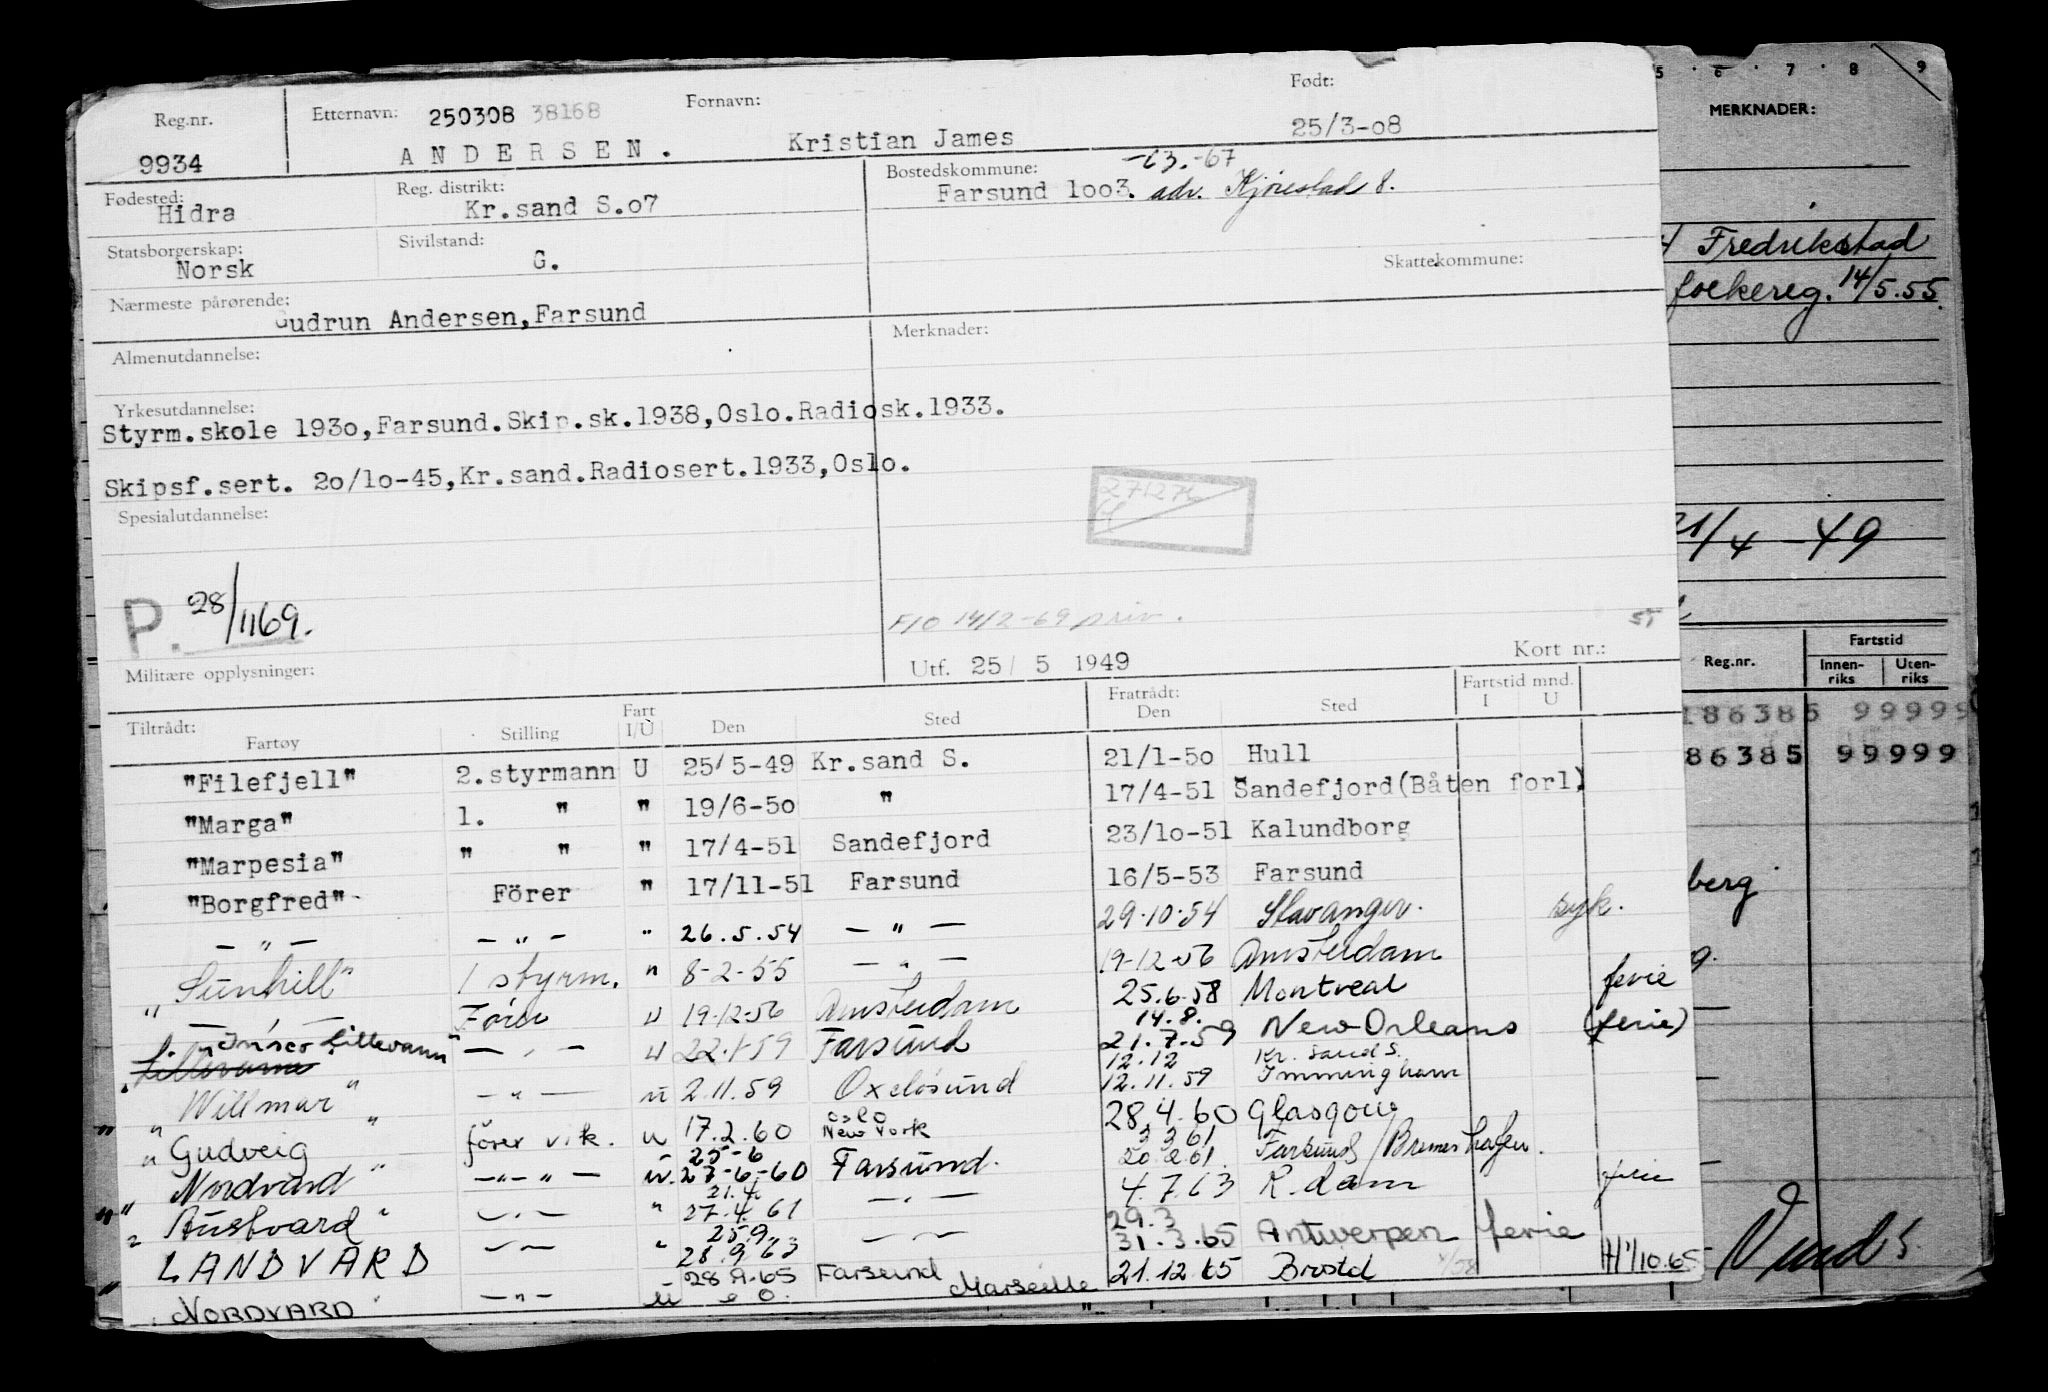 Reg.nr. Etternavn: 250308 38168 Fornavn: Født:
9934 ANDERSEN. Kristian James 25/3-08
Fødested: Reg. distrikt: Bostedskommune: -67
Hidra Kr.sand S.o7 Farsund 1oo3. adr.
Statsborgerskap: Sivilstand:
Norsk G. Skattekommune:
Nærmeste pårørende:
Gudrun Andersen,Farsund
Almenutdannelse: Merknader:
Yrkesutdannelse:
Styrm.skole 193o,Farsund.Skip.sk.1938,Oslo.Radiosk.1933.
Skipsf.sert. 2o/1o-45,Kr.sand.Radiosert.1933,Oslo.
Spesialutdannelse:
P. 28/1169.
14/2-69 priv.
Militære opplysninger: Utf. 25/ 5 1949 Kort nr.:
Tiltrådt: Fart Fratrådt: Fartstid mnd.
Fartøy Stilling I/U Den Sted Den Sted I U
"Filefjell" 2.styrmann U 25/5-49 Kr.sand S. 21/1-5o Hull
"Marga" 1. " " 19/6-5o " 17/4-51 Sandefjord(Båten forl.)
"Marpesia" " " " 17/4-51 Sandefjord 23/1o-51 Kalundborg
"Borgfred" Förer " 17/11-51 Farsund 16/5-53 Farsund
— " — — " — " 26.5.54 — " — 29.10.54 Stavanger. syk.
"Sunhill" 1 styrm. " 8-2-55 — " — 19-12-56 Amsterdam
— " — Förer u 19-12-56 Amsterdam 25.6.58 Montreal ferie
Lillevann — " — u 59 Farsund 14.8. 21.7.59 New Orleans (ferie)
"Willmar" — " — u 2.11.59 Oxelösund 12.12 12.11.59 Kr. Sand S. Immingham
"Gudveig" förer vik. u 17.2.60 Oslo New York 28.4.60 Glasgow
"Nordvard" — " — u. 25-6 27-6-60 Farsund. 3 3 61 20.2.61. Farsund/Bremerhafen.
"Austvard" — " — " 21.4 27.4.61 — " — 4.7.63 R.dam ferie
"LANDVARD — " — " 25.9. 28.9 63 — " — 29.3 31.3.65 Antwerpen ferie
"NORDVARD" — " — u 28 9.65 Farsund Marseille 21.12 65 Brestol 1/10.65
5 6 7 8 9
MERKNADER:
Fredrikstad
folkereg. 14/5.55.
21/4 -49
Reg.nr. Fartstid
Innen- Uten-
riks riks
186385 99999
86385 99999
berg